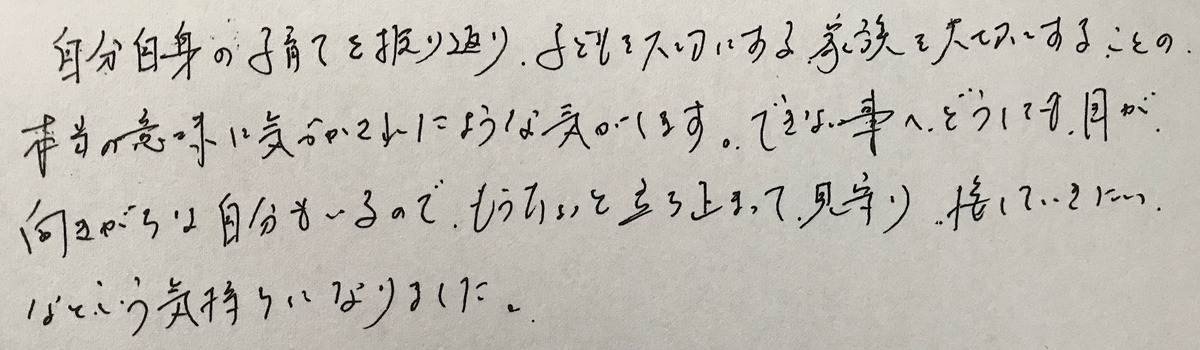 自分自身の子育てを振り返り、子どもを大切にする、家族を大切にすることの、
本当の意味に気づかされたような気がします。できない事へ、どうしても、目が、
向きがちな自分もいるので、もうちょっと立ち止まって、見守り、接していきたい、
なという気持ちになりました。